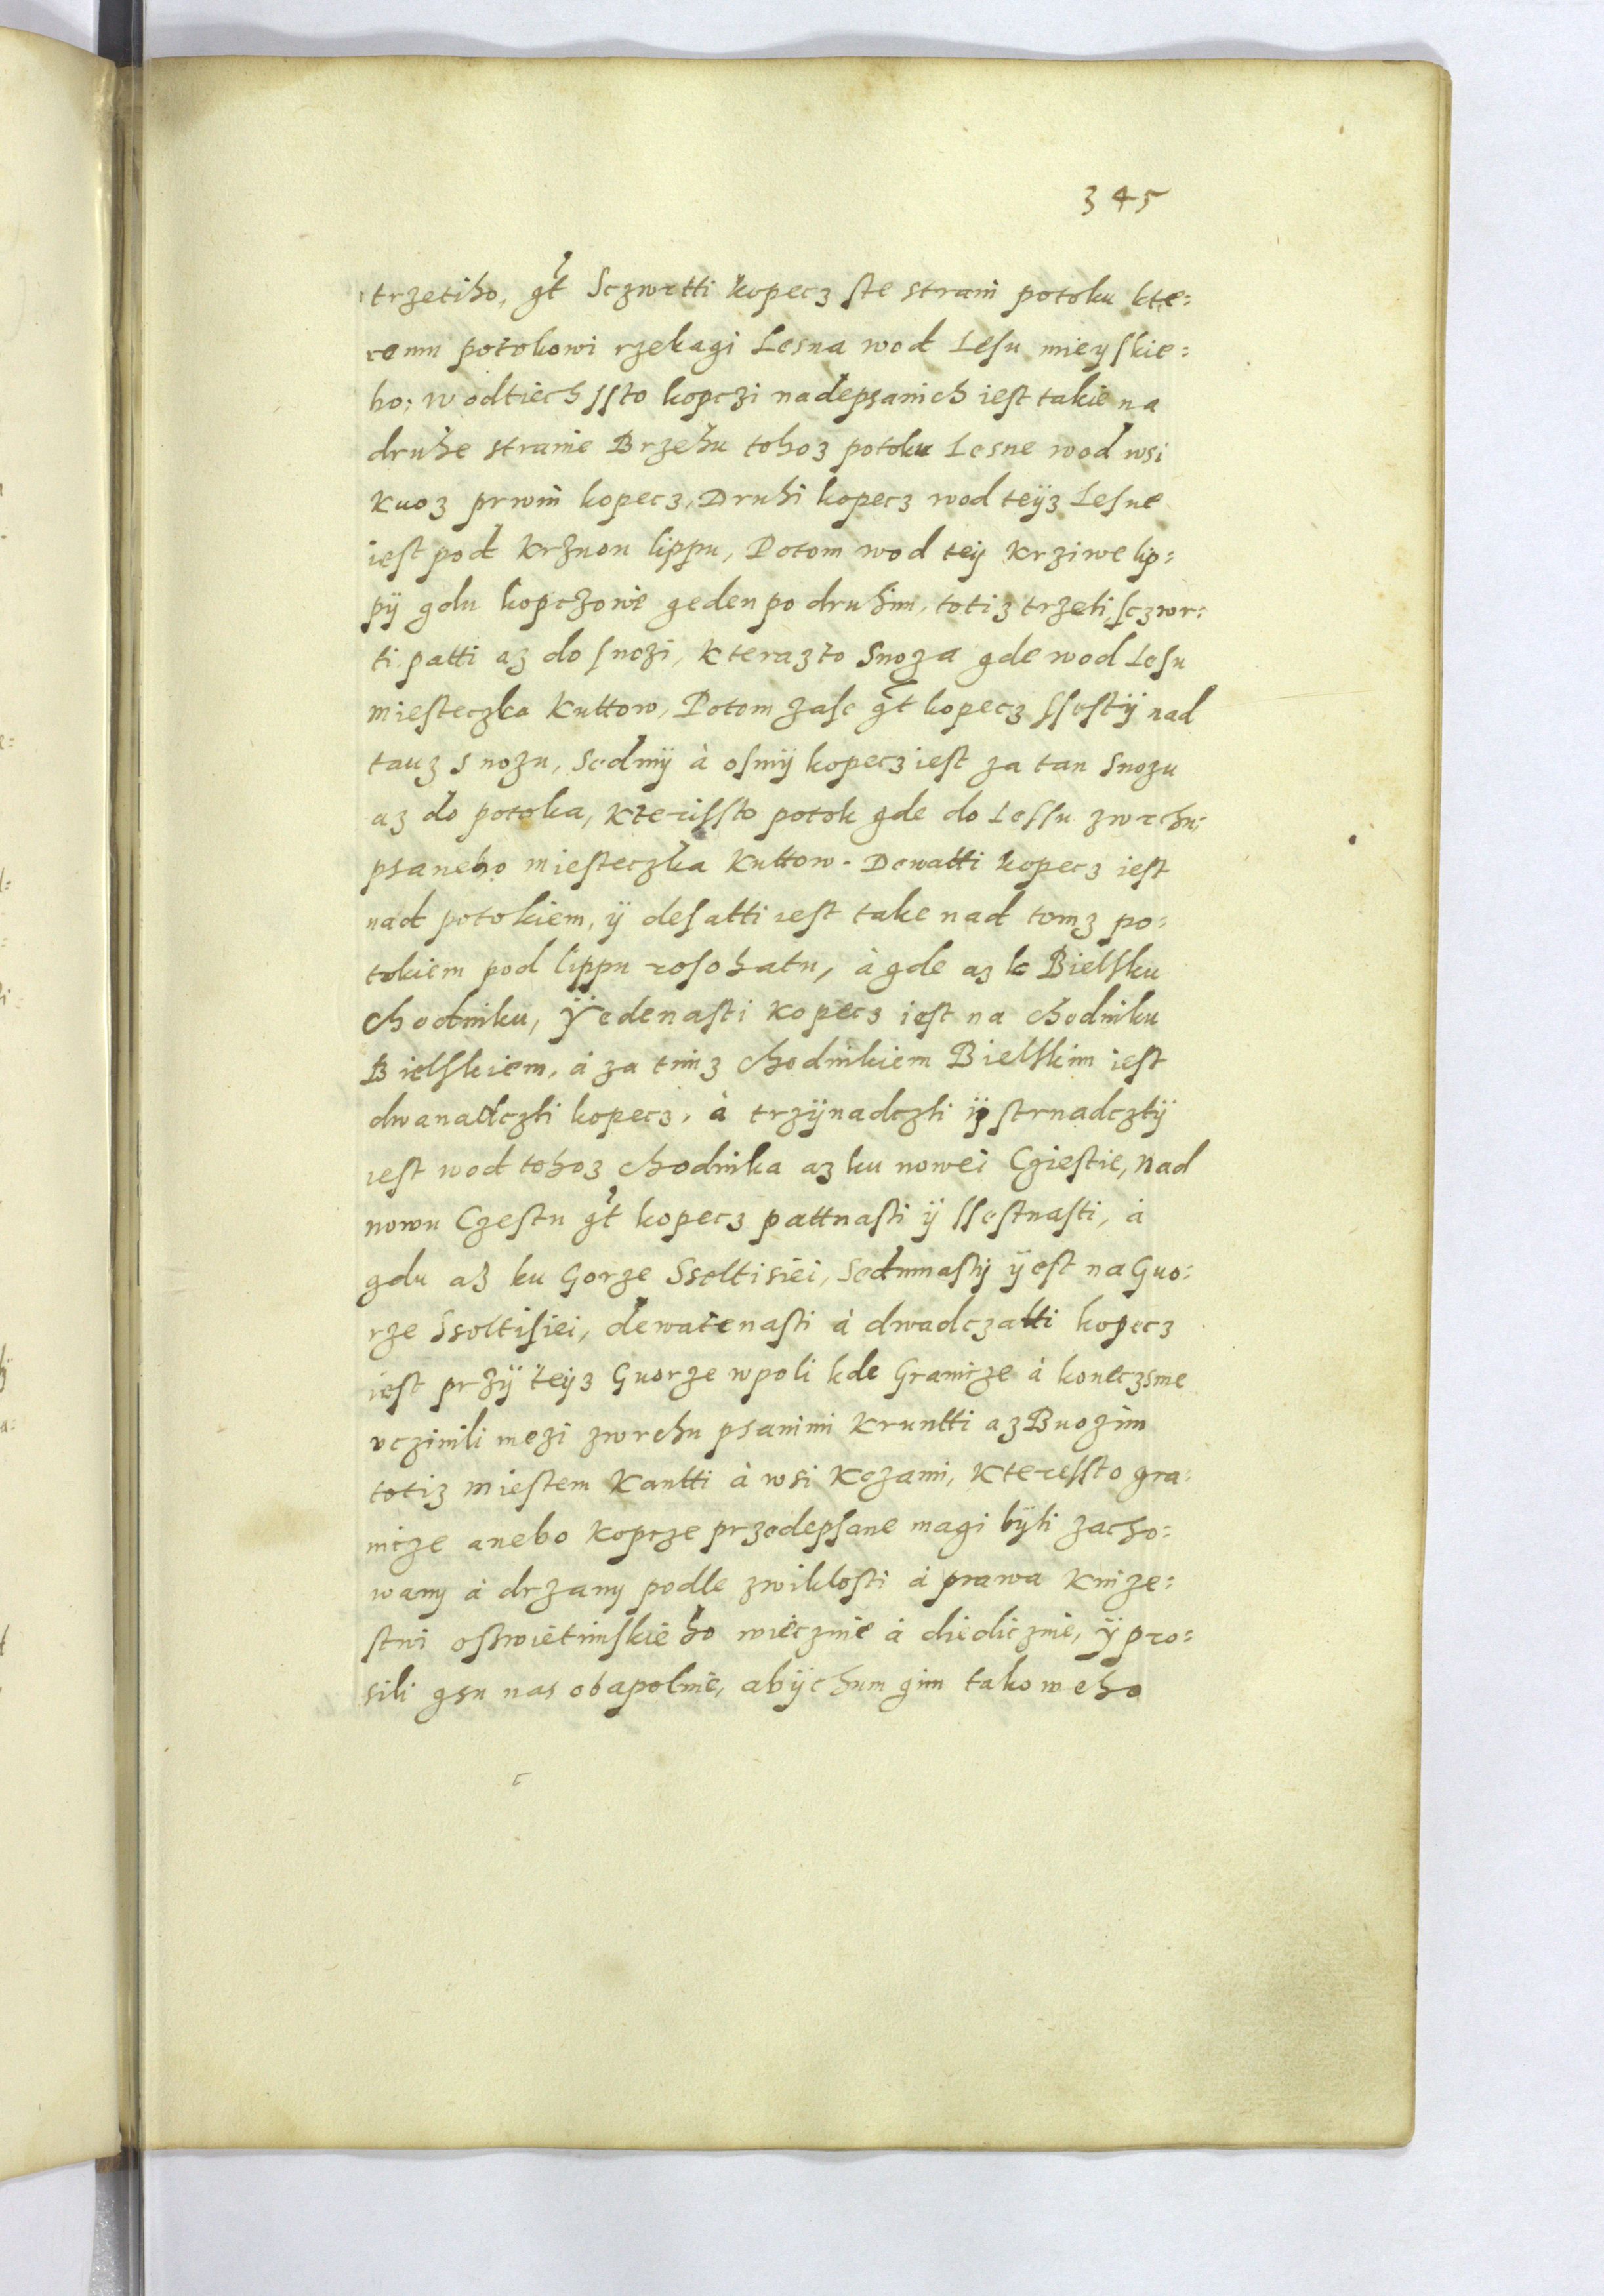 345
trzetiho, gt Sczwrtti kopecz ste strani potoku kte:
remu potokowi rzekagi Lesna wod Lesu mieyskie:
ho; wodtiech ssto kopczi nadepsanich iest takie na
druhe stranie Brzehu tohoz potoku Lesne wod wsi
Kuoz prwni kopecz, Druhi kopecz wod teÿz Lesne
iest pod krznou lippu, Potom wod teÿ krziwe lip:
pÿ gdu kopczowie geden po druhim, totiz trzeti, sczwr:
ti, patti az do snozi, kterazto Snoza gde wod Lesu
miesteczka Kuttow, Potom zase gt kopecz ssestÿ nad
tauz snozu, sedmÿ à osmÿ kopecz iest za tau snozu
az do potoka, kterissto potok gde do Lessu zwrchu:
psaneho miesteczka Kuttow. Dewatti kopecz iest
nad potokiem, ÿ desatti iest take nad tomz po:
tokiem pod lippu rosohatu, à gde az k Bielsku
chodniku, Yedenasti kopecz iest na chodniku
Bielskiem, à za timz chodnikiem Bielskim iest
dwanadczti kopecz, à trzÿnadczti ÿ strnadcztÿ
iest wod tohoz chodnika az ku nowei Cziestie, nad
nowu Czestu gt kopecz pattnasti ÿ ssestnasti, à
gdu az ku Gorze Ssoltisiei, Sedmnastÿ ÿest na Guo:
rze Ssoltisiei, dewatenasti à dwadczatti kopecz
iest przÿ teÿz Guorze wpoli kde Granicze à koneczsme
vczinili mezi zwrchu psanimi Kruntti az Buozim
totiz miestem Kantti à wsi Kozami, kteressto gra:
nicze anebo Kopcze przedepsane magi bÿti zacho:
wany à drzany podle zwiklosti à prawa Knize:
stwi osswietimskieho wiecznie à diedicznie, ÿ pro:
sili gsu nas obapolnie, abÿchum gim takoweho